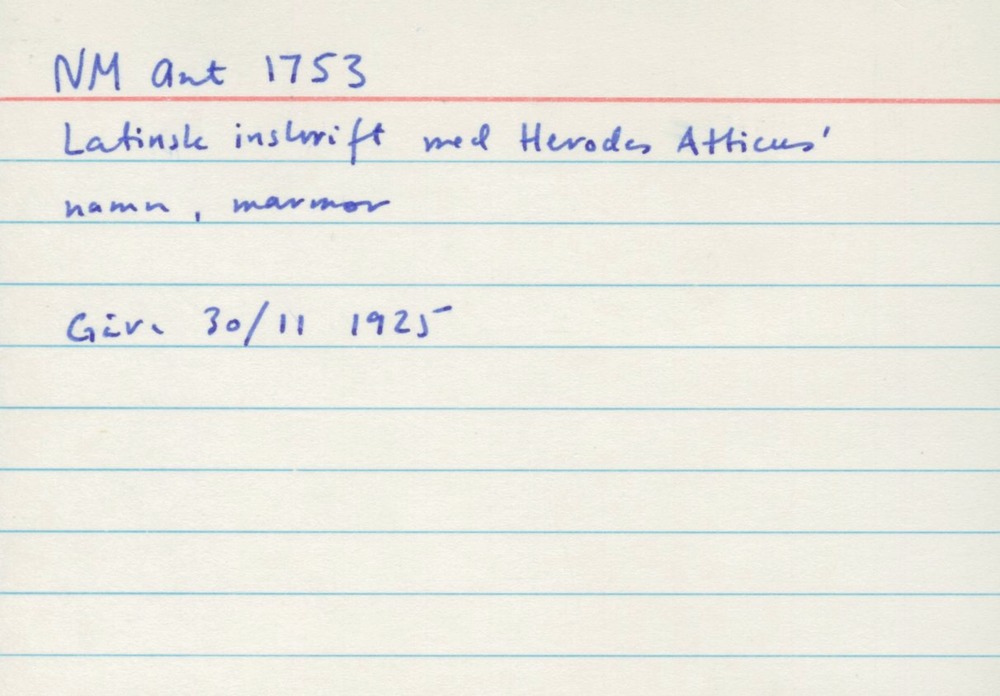 NM Ant 1753
Latinsk inskrift med Herodes Atticus'
namn, marmor
Giv. 30/11 1925